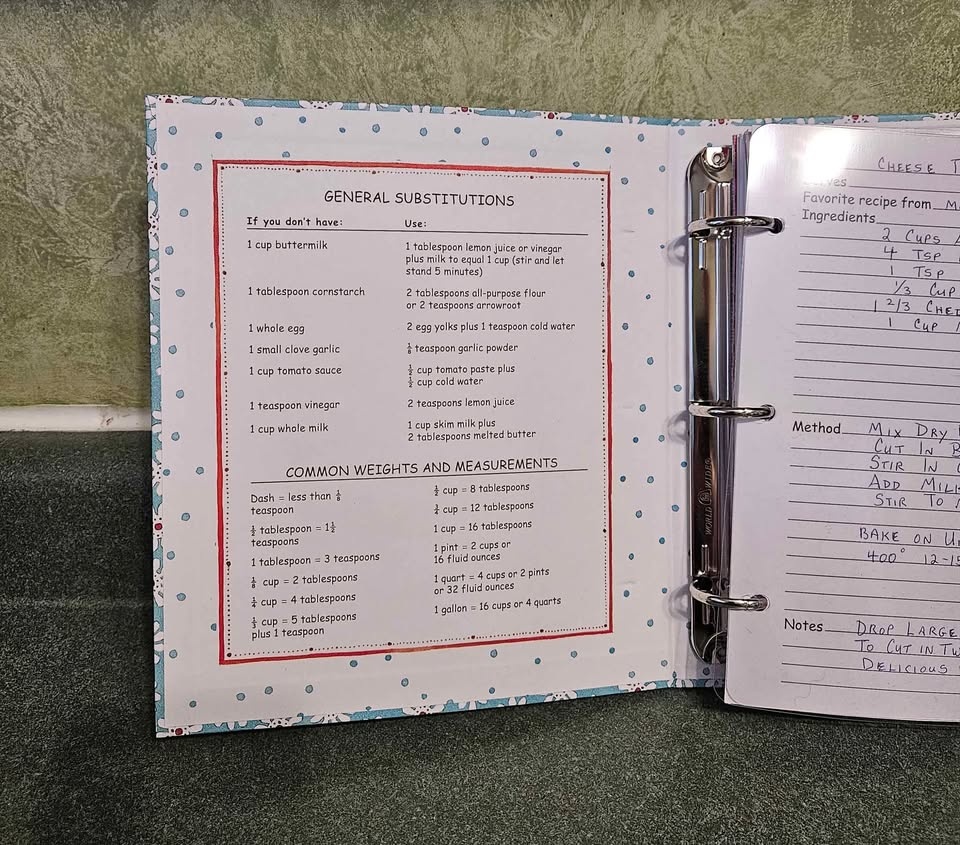 GENERAL SUBSTITUTIONS
If you don't have: Use:
1 cup buttermilk 1 tablespoon lemon juice or vinegar
plus milk to equal 1 cup (stir and let
stand 5 minutes)
1 tablespoon cornstarch 2 tablespoons all-purpose flour
or 2 teaspoons arrowroot
1 whole egg 2 egg yolks plus 1 teaspoon cold water
1 small clove garlic ⅛ teaspoon garlic powder
1 cup tomato sauce ½ cup tomato paste plus
½ cup cold water
1 teaspoon vinegar 2 teaspoons lemon juice
1 cup whole milk 1 cup skim milk plus
2 tablespoons melted butter
COMMON WEIGHTS AND MEASUREMENTS
Dash = less than ⅛
teaspoon
½ tablespoon = 1½
teaspoons
1 tablespoon = 3 teaspoons
⅛ cup = 2 tablespoons
¼ cup = 4 tablespoons
⅓ cup = 5 tablespoons
plus 1 teaspoon
½ cup = 8 tablespoons
¾ cup = 12 tablespoons
1 cup = 16 tablespoons
1 pint = 2 cups or
16 fluid ounces
1 quart = 4 cups or 2 pints
or 32 fluid ounces
1 gallon = 16 cups or 4 quarts
WORLD WIDE
CHEESE
Favorite recipe from
Ingredients
2 CUPS
4 TSP
1 TSP
1/3 CUP
1 2/3
1 CUP
Method MIX DRY
CUT IN
STIR IN
ADD
STIR TO
BAKE ON
400° 12-15
Notes DROP LARGE
TO CUT IN
DELICIOUS